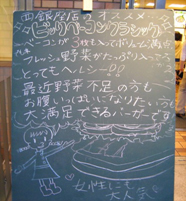 西銀座店のオススメ
ビッグベーコンクラシック
ベーコンが3枚も入ってボリューム満点
フレッシュ野菜がたっぷり入って
とってもヘルシー!!
最近野菜不足の方も
お腹いっぱいになりたい方も
大満足できるバーガーです
女性にも
大人気